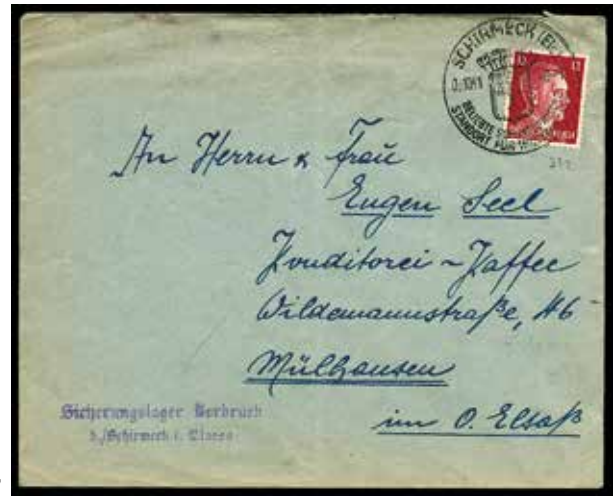 SCHIRMECK
BELIEBTE
STANDORT FÜR
An Herrn & Frau
Eugen Seel
Konditorei - Kaffee
Wildemannstraße, 46
Mülhausen
im O. Elsaß
Sicherungslager Vorbruck
b./Schirmeck i. Elsass